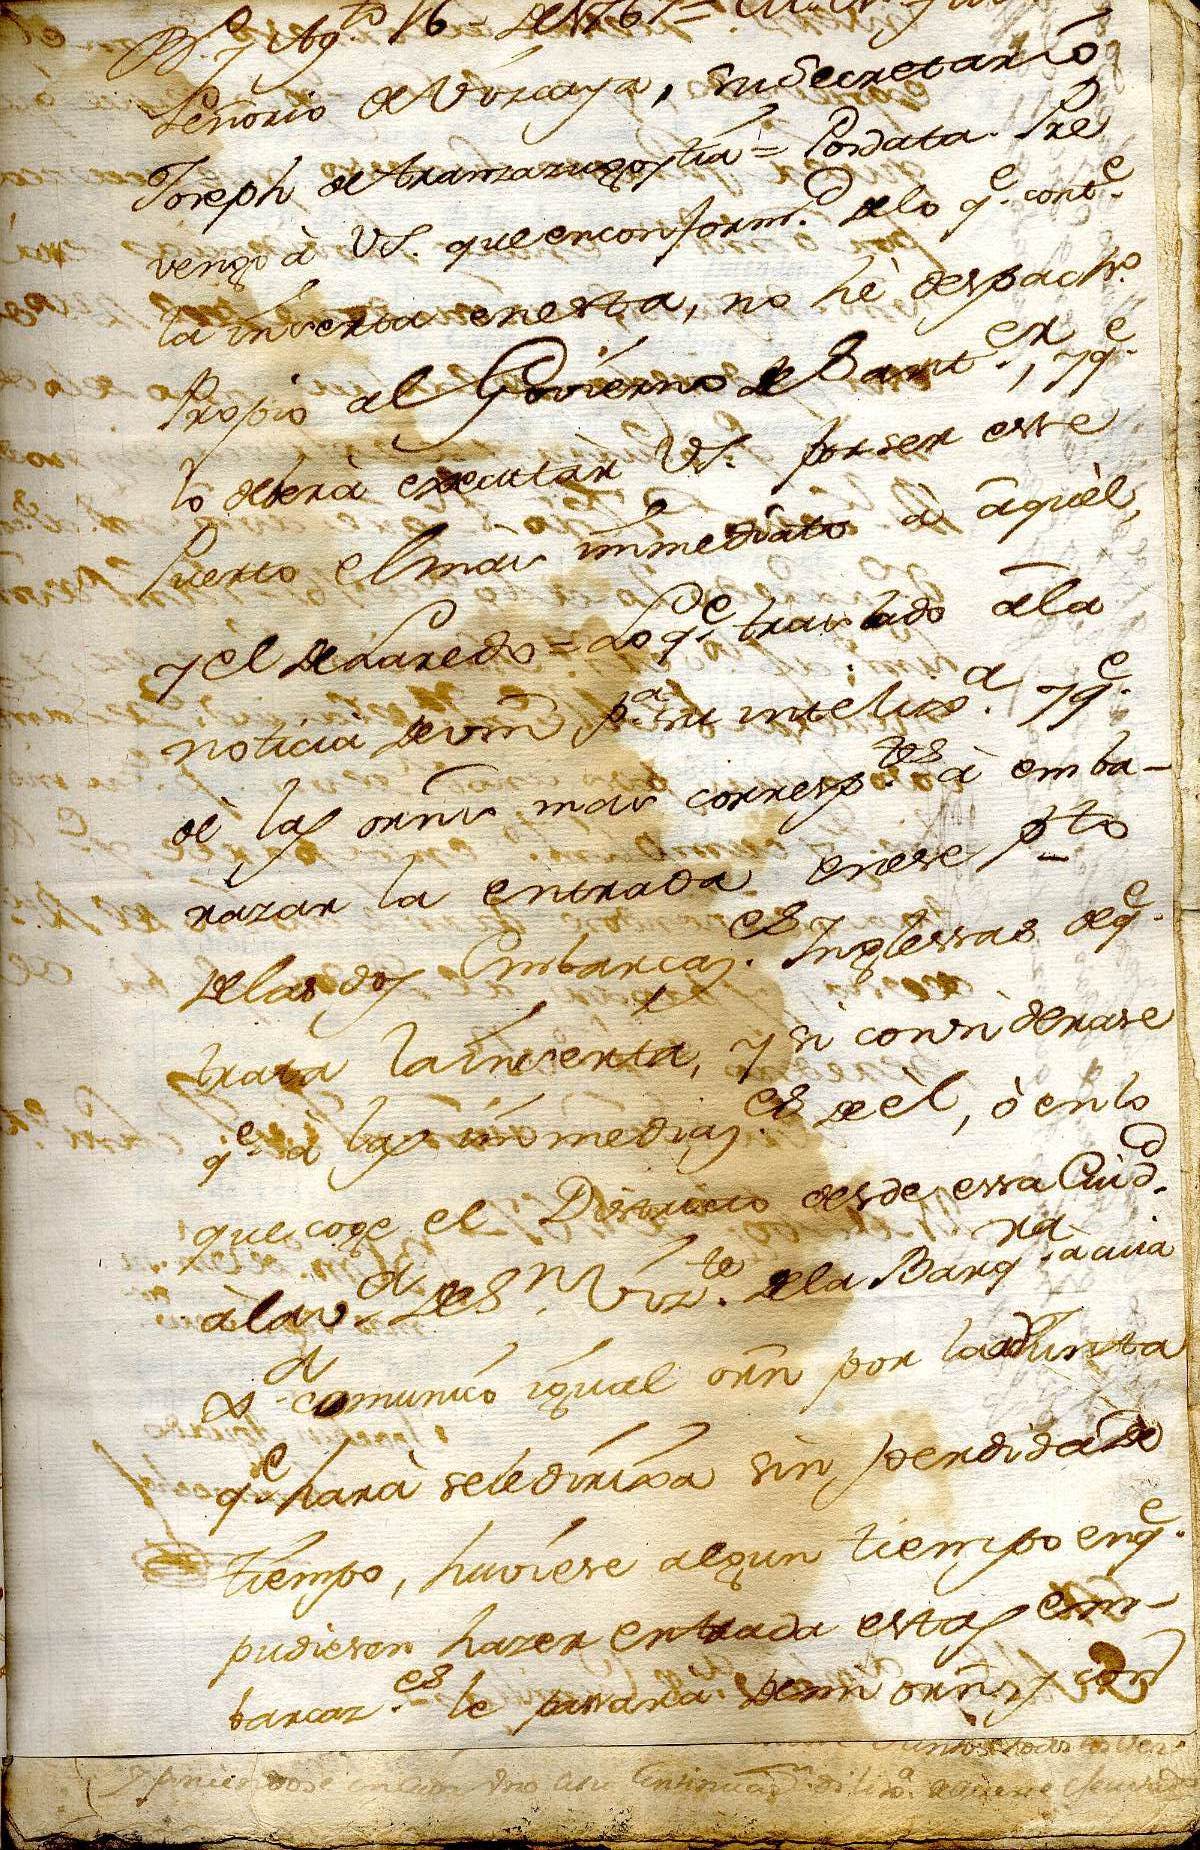 B.º y Ag.to 16 = de 1767 =
Señorio de Vizcaya, su Secretario
Joseph de Aramazugoytia = Posdata. Pre
vengo à VS. que en conform.d de lo q.e cont.e
la inserta en esta, no hè despach.do
Propio al Govierno de Sant.er, y q.e
lo deberà executar VS. por ser esse
Puerto el mas immediato à aquèl,
y el de Laredo = Lo q.e traslado à la
noticia de vm p.a su intelix.a y q.e
dè las orns mas corresp.tes à emba-
razar la entrada en ese p.to
de las dos Embarcaz.es Inglessas de q.e
trata la inserta, y si considerase
q.e à las immediaz.es de èl, ò en lo
que coge el Distrito desde essa Ciud.d
à la v.a de S.n Viz.te de la Barq.ra à cuia
comunico igual orn por la adjunta
q.e harà se le dirixa sin perdida de
tiempo, huviese algun tiempo en q.e
pudiesen hazer entrada estas em-
barcaz.es le passarà de mi orn y con